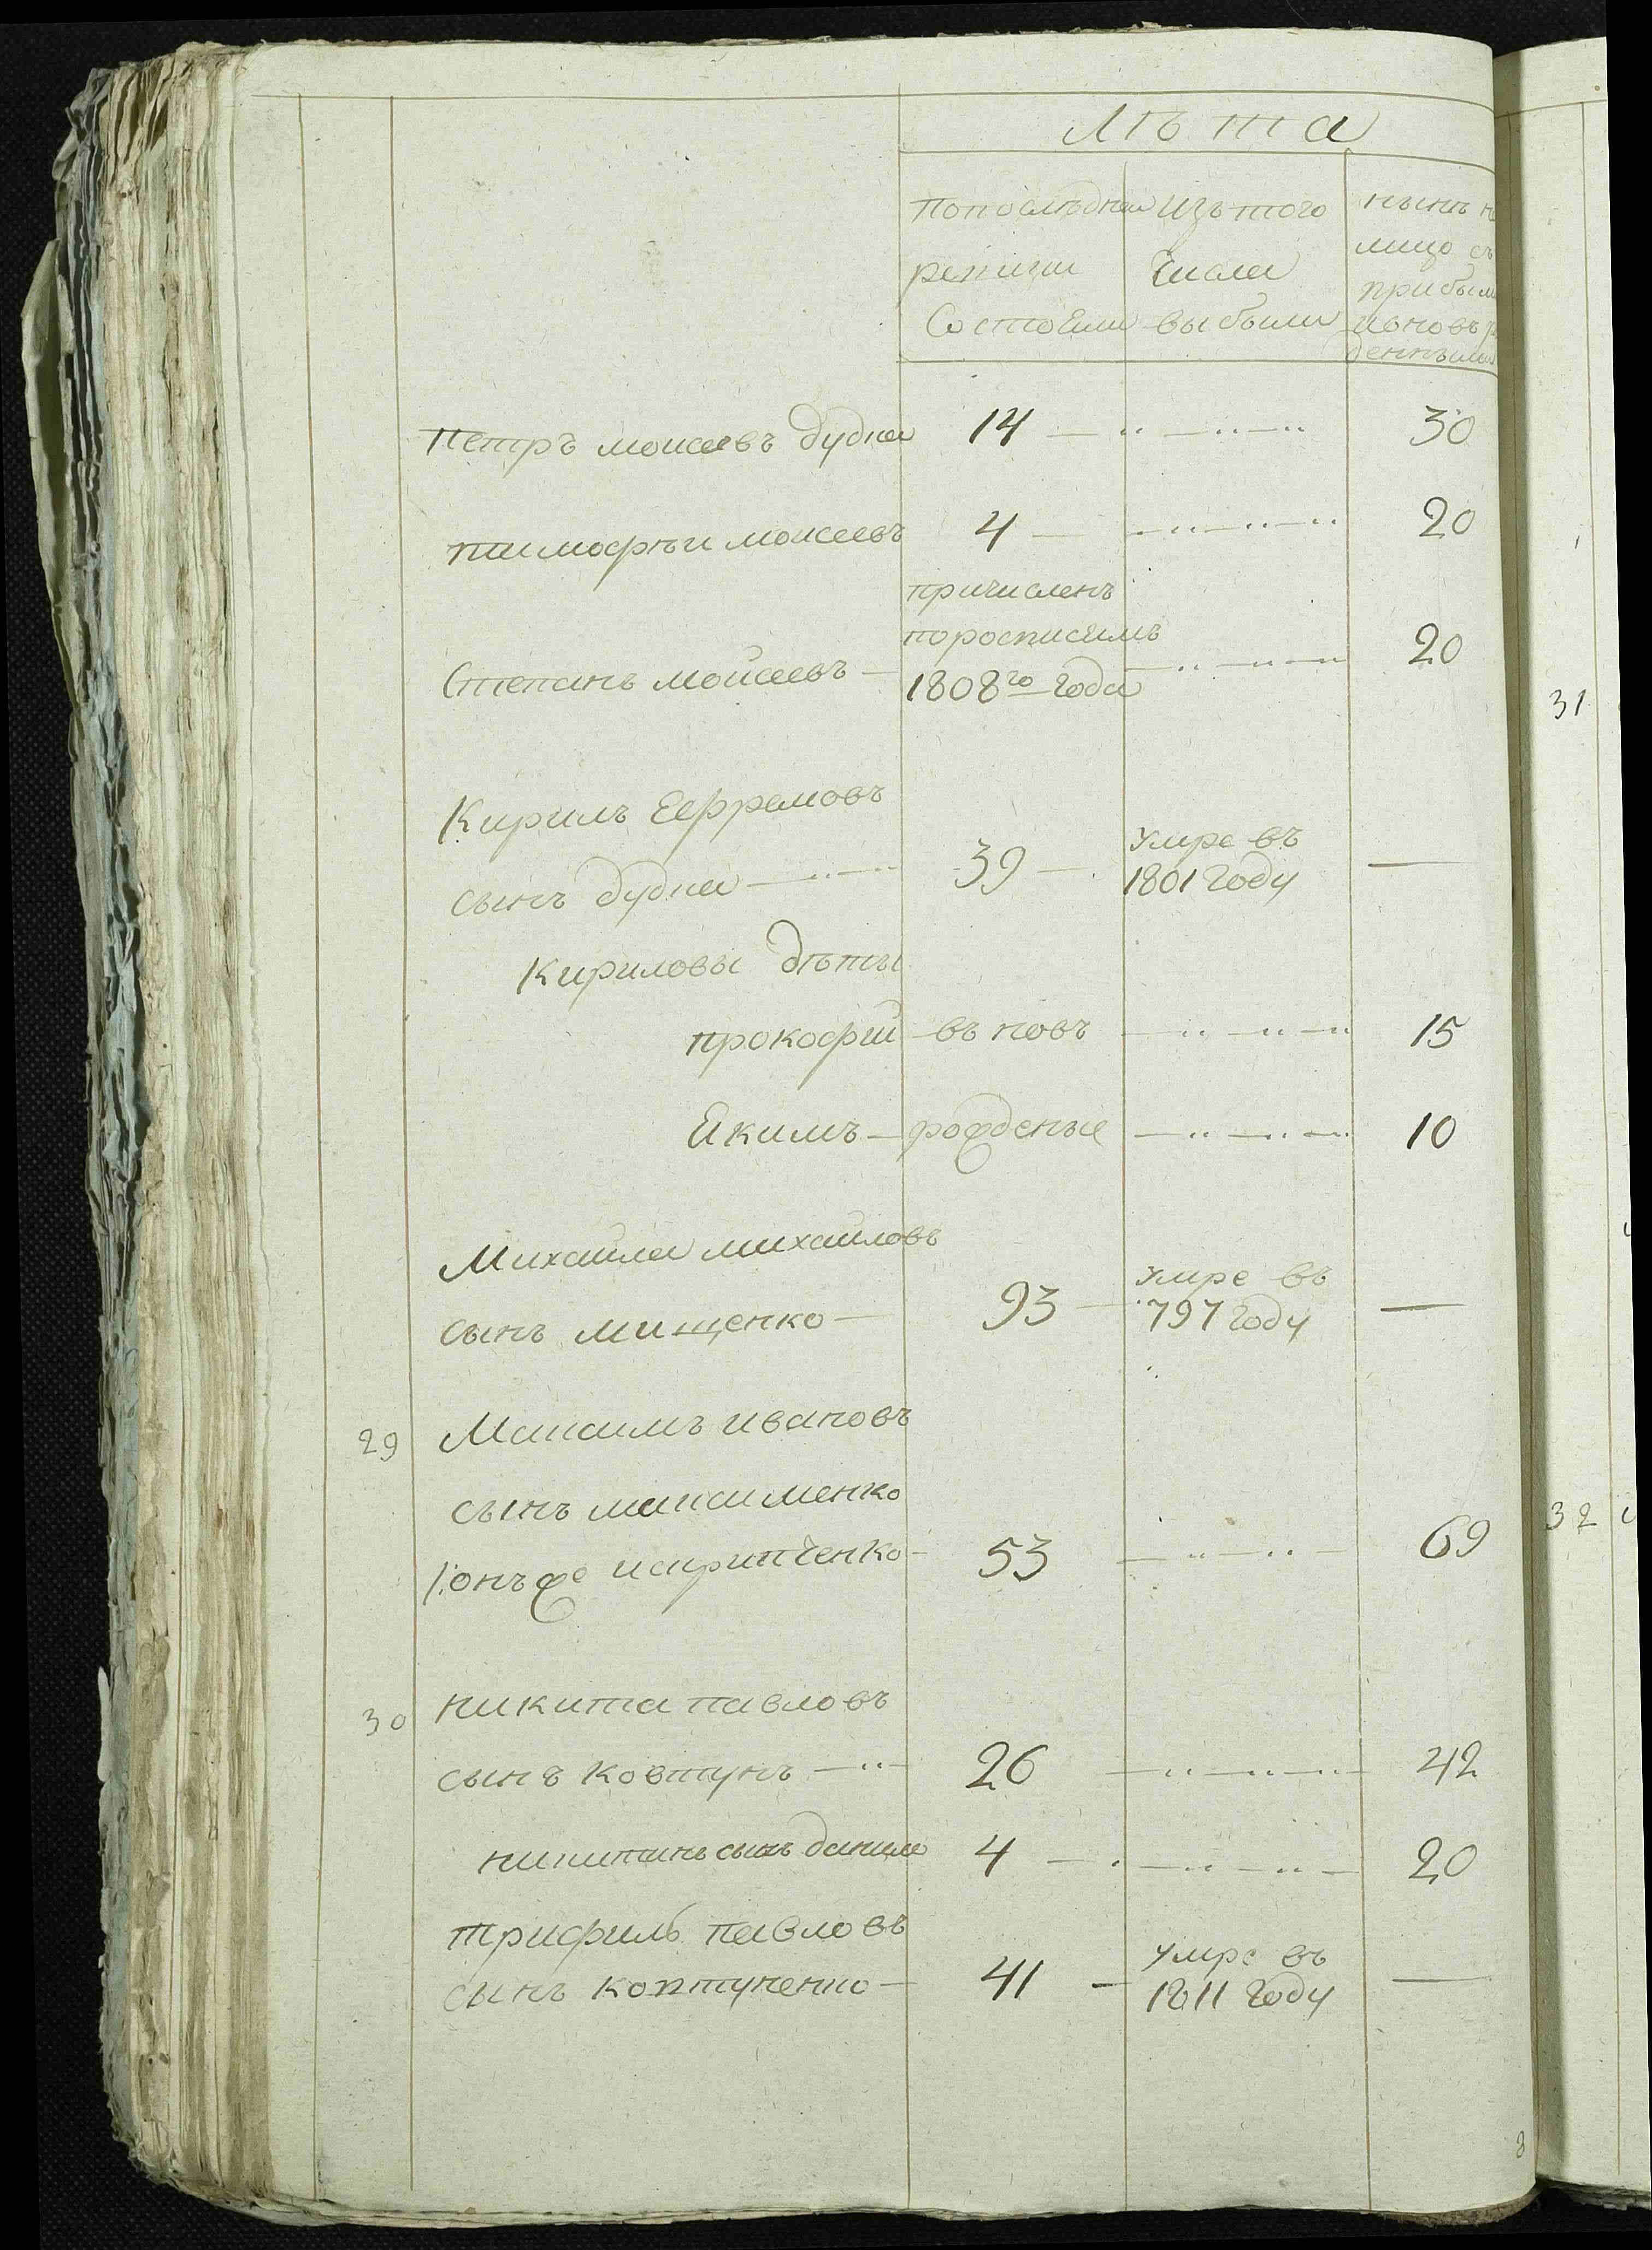 Лѣта
По последнеи
ревизии
Состояли
изътого
числа
выбыли
нынѣ н
лицо съ
прибыли
ивновь р
денными
Петръ моисеевъ дудка 14 30
тимофѣи моисеевъ 4 20
причисленъ
поросписямъ
Степанъ моисеевъ 1808го года 20
Кирилъ Ефремовъ
сынъ дудка 39 умре въ 1801 году
Кириловы дѣти
прокофий въ новъ 15
Якимъ рожденые 10
Михаила михаиловъ
сынъ мищенко 93 умре въ 797 году
29 Максимъ ивановъ
сынъ максименко
онъже искрипченко 53 69
31
32
30 никита павловъ
сынъ ковтунъ 26 42
никитинъ сынъ данила 4 20
трифилъ павловъ
сынъ ковтуненко 41 умре въ 1811 году